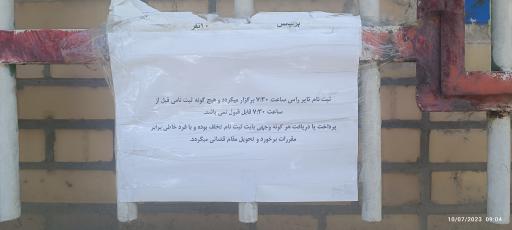 پرسس ۱۰نفر
ثبت نام تایر راس ساعت ۷:۳۰ برگزار میگردد و هیچ گونه ثبت نامی قبل از
ساعت ۷:۳۰ قابل قبول نمی باشد.
پرداخت یا دریافت هر گونه وجهی بابت ثبت نام تخلف بوده و با فرد خاطی برابر
مقررات برخورد و تحویل مقام قضائی میگردد.
10/07/2023 09:04